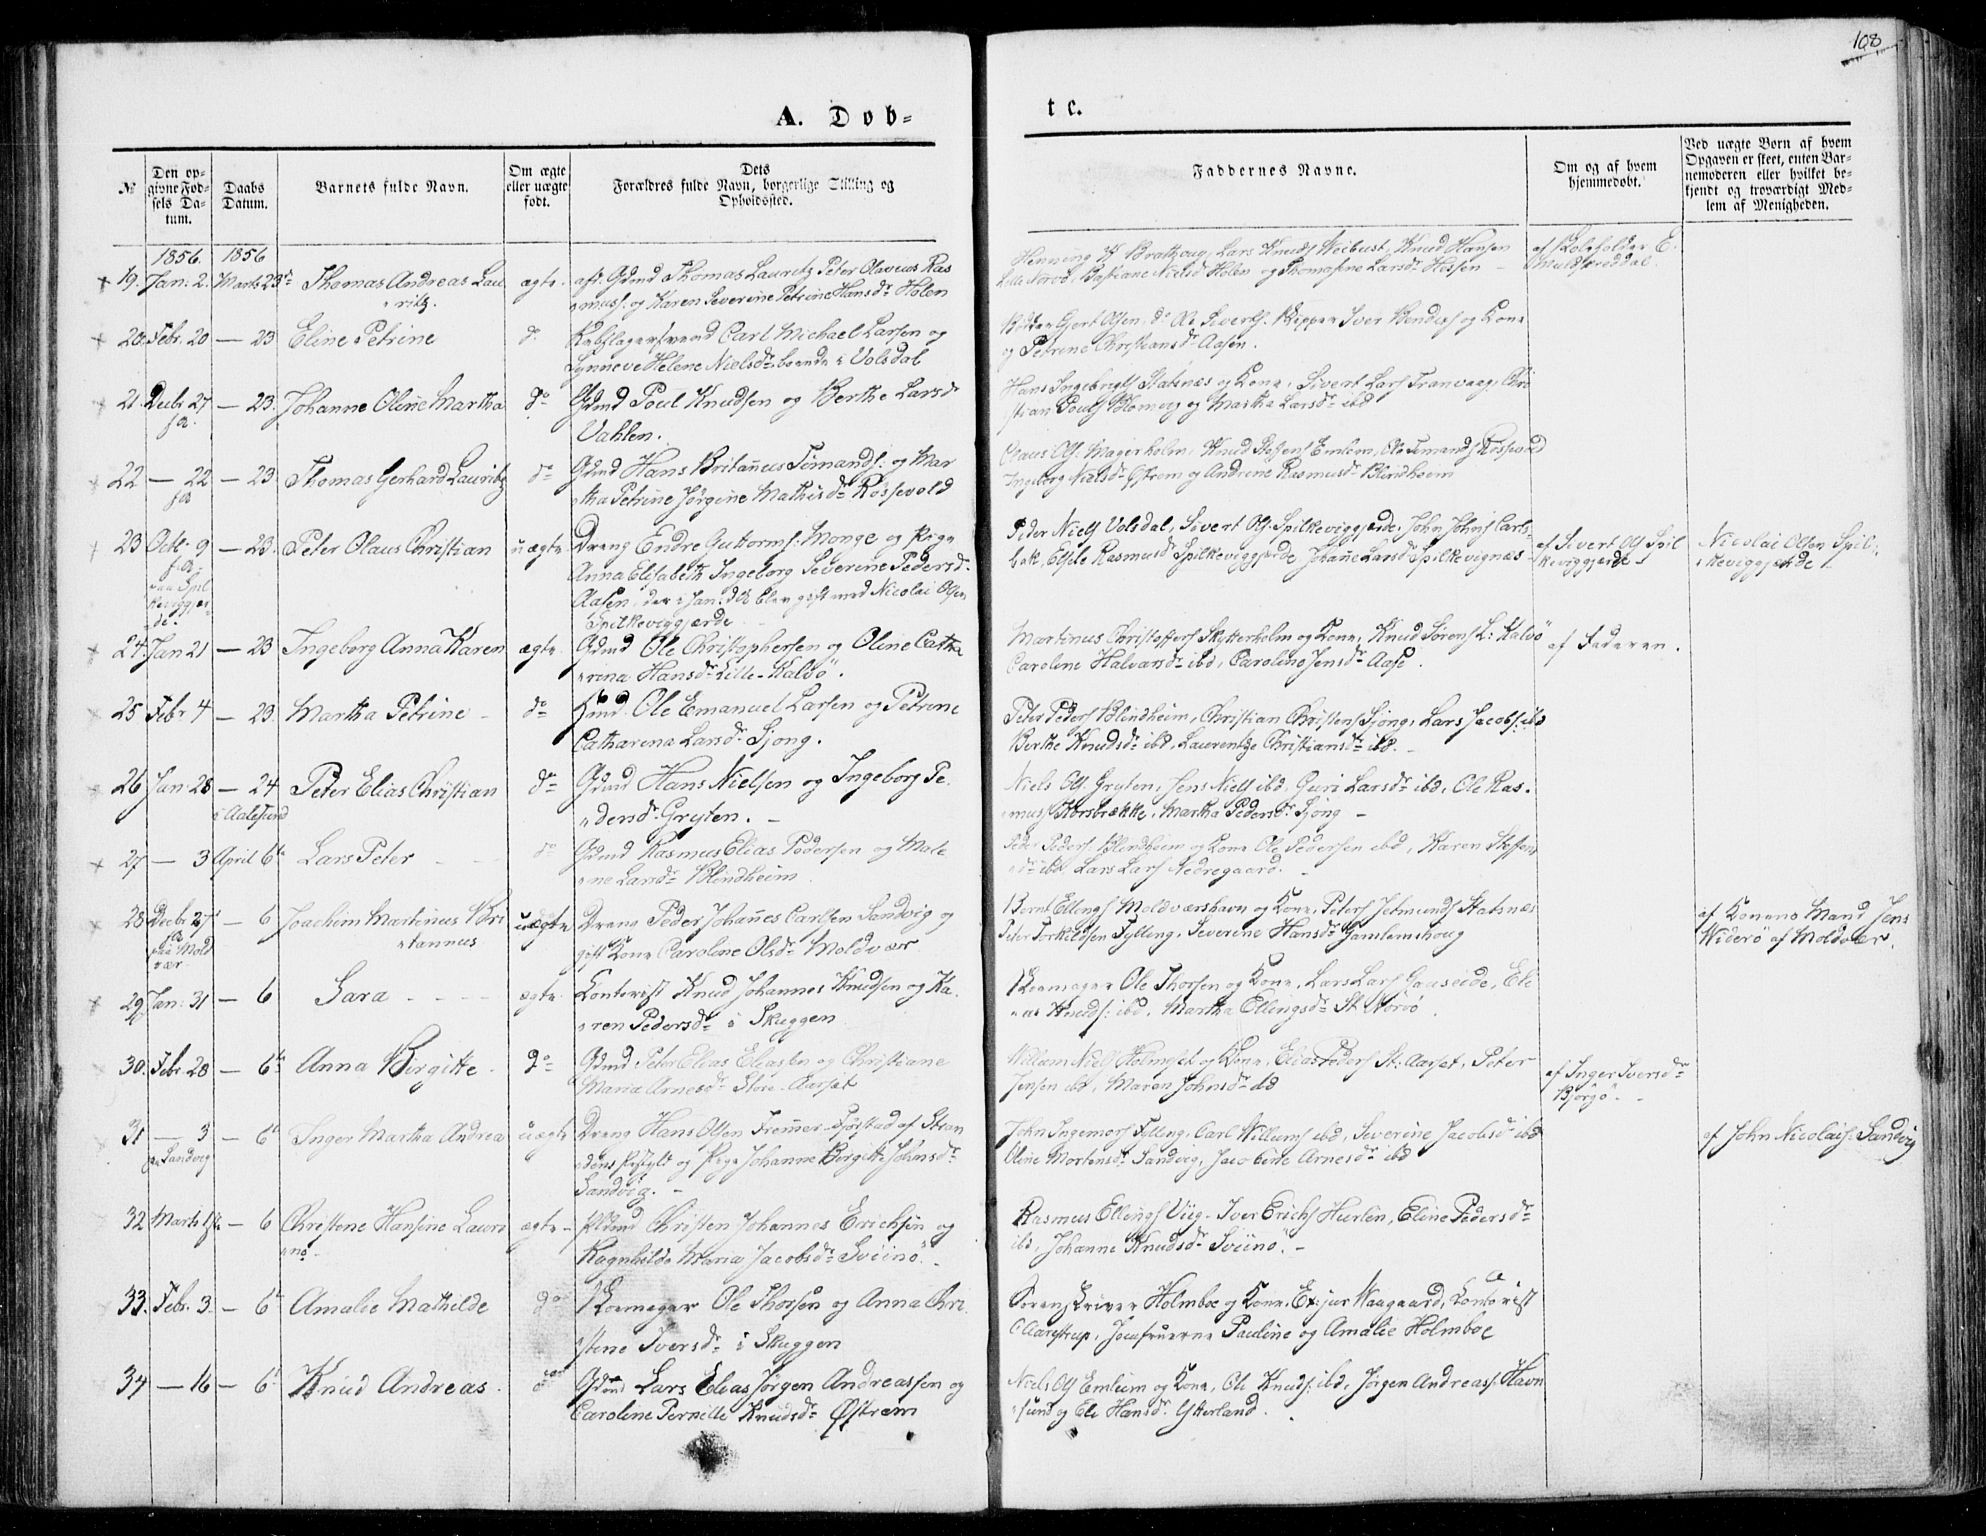 108
A. Døb-
te.
№
Den op-
givne Fød-
sels Da-
tum.
Daabs
Datum.
Barnets fulde Navn.
Om ægte
eller uægte
født.
Dets
Forældres fulde Navn, borgerlige Stilling og
Opholdssted.
Faddernes Navne.
Om og af hvem
hjemmedøbt.
Ved uægte Børn af hvem
Opgaven er skeet, enten Bar-
nemoderen eller hvilket be-
kjendt og troværdigt Med-
lem af Menigheden.
1856 1856
19. Jan: 2. Marts 23 Thomas Andreas Lau
ritz. ægte. Gdmd Thomas Lauritz Peter Olaveus Ras
muss: og Karen Severine Petrine Hansdr Holen
Lars Knuds Veibust, Knud Hansen
Lille Nørvø, Bastiane Nielsd Holen og Thomasine Larsdr Hessen
20. Febr. 20 — 23 Eline Petrine do Rebslagersvend Carl Michael Larsen og
Synneve Helene Nielsdr boende i Volsdal
Gjert Olsen, do Ole Siverts. Skipper Iver Bendixs og Kone
og Petrine Christiansdr Aasen.
21. Decbr 27 — 23. Johanne Oline Martha do Gdmd Poul Knudsen og Berthe Larsdr
f.A.
Vahlen.
Hans Ingebrigts Slatnæs og Kone, Sivert Lars Tranvaag, Chri
stian Pouls Blomvig og Martha Larsdr ibd
22 — 22 — 23. Thomas Gerhard Lauritz do Gdmd Hans Britannus Timands: og Mar
fA
tha Petrine Jørgine Mathisdr Røssevold
Claus Ols Magerholm, Knud Steffens Emlem, Ole Timands Røssevold
Ingeborg Nielsdr Østrem og Andrine Rasmusdr Blindheim
23 Octbr 9 — 23. Peter Olaus Christian uægte Dreng Endre Guttorms: Monge og Pige
f.A.
paa Spil
keviggjer-
de.
Anna Elisabeth Ingeborg Severine Pedersdr
Aasen, der i Jan: d.A. blev gift med Nicolai Olsen
Spilkeviggjerde
Peder Niels Volsdal, Sivert Ols Spilkeviggjerde, John Johns Carls-
bak, Elsebe Rasmusdr Spilkeviggjerde Johanne Larsdr Spilkevignæs
af Sivert Ols Spil
keviggjerde
Nicolai Olsen Spil-
keviggjerde.
24. Jan 21 — 23 Ingeborg Anna Karen ægte. Gdmd Ole Christophersen og Oline Catha
rina Hansdr Lille-Kalvø.
Martinus Christoffers Skytterholm og Kone, Knud Sørens L: Kalvø
Caroline Halvarsdr ibd, Caroline Jensdr Aase.
af Faderen.
25 Febr 4 — 23. Martha Petrine do Hmd. Ole Emanuel Larsen og Petrine
Catharina Larsdr Sjong.
Peter Peders Blindheim, Christian Christens Sjong, Lars Jacobs: ibd
Berthe Knudsdr ibd, Laurentze Christiansdr ibd.
26 Jan 28 — 24 Peter Elias Christian do Gdmd Hans Nielsen og Ingeborg Pe-
i Aalesund
dersdr Gryten.
Niels Ols Gryten, Jens Niels ibd, Guri Larsdr ibd, Ole Ras-
mus Korsbrække, Martha Pedersdr Sjong
27 — 3 April 6te Lars Peter do Gdmd Rasmus Elias Pedersen og Male
ne Larsdr Blindheim
Peders Blindheim og Kone Ole Pedersen ibd, Karen Steffens
dr ibd Lars Lars Nedregaard.
28 Decbr 27 — 6 Joachim Martinus Bri
tannus uægte Dreng Peder Johannes Carlsen Sandvig og
fA
paa Mold
vær
gift Kone Caroline Olsdr Moldvær
Bernt Ellings Moldværshavn og Kone, Peter Jetmunds Slatnæs
Peter Torkildsen Fylling, Severine Hansdr Gamlemshoug
af Konens Mand Jens
Widerø af Moldvær.
29 Jan: 31 — 6 Sara ægte. Contorist Knud Johannes Knudsen og Ka-
ren Pedersdr i Skuggen
Skoemager Ole Thorsen og Kone, Lars Lars Gaaseide, Eli
as Knuds: ibd, Martha Ellingsdr St. Nørvø.
30. Febr 28 — 6te Anna Birgitte. do Gdmd Peter Elias Eliassen og Christiane
Maria Arnesdr Store-Aarset
William Niels Holmset og Kone, Elias Peders St: Aarset, Peter
Jensen ibd, Maren Johnsdr ibd
af Inger Iversdr
Bjørgø.
31 — 3 — 6te Inger Martha Andrea uægte Dreng Hans Olsen Tremner-Fjørstad af Stran
paa Sandvig
dens Prstgld og Pige Johanne Birgitte Johnsdr
Sandvig.
John Ingemors Fylling, Carl Willums ibd, Severine Jacobsdr ibd
Oline Mortensdr Sandvig, Jacobine Arnesdr ibd
af John Nicolais: Sandvig
32 Marts 1ste — 6 Christene Hansine Lauri
ne. ægte — Christen Johannes Ericksen og
Ragnhilda Maria Jacobsdr Sviinø.
Rasmus Ellings Viig, Iver Erichs Hurlen, Eline Pedersdr
ibd, Johanne Knudsdr Sviinø.
33. Febr. 3. — 6te Amalie Mathilde do Skoemager Ole Thorsen og Anna Chri
stine Iversdr i Skuggen
Sorenskriver Holmboe og Kone, Ex: jur Waagaard, Contorist
C Aarestrup, Jomfruerne Pauline og Amalie Holmboe
34 — 16 — 6te Knud Andreas. do Gdmd Lars Elias Jørgen Andreassen og
Caroline Pernille Knudsdr Østrem
Niels Ols Emlem og Kone, Ole Knuds: ibd, Jørgen Andreass: Havn
sund og Eli Hansdr Ytterland.